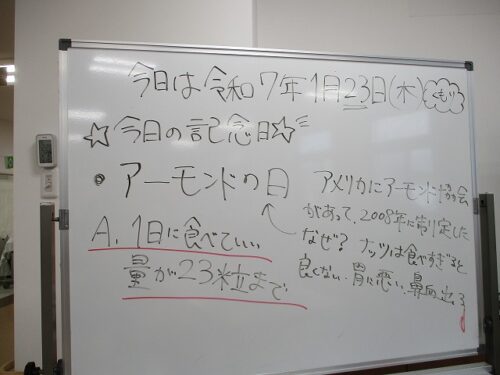 今日は令和7年1月23日(木)
くもり
☆今日の記念日☆
・アーモンドの日
A. 1日に食べていい
量が23粒まで
アメリカにアーモンド協会
があって、2008年に制定した
なぜ? ナッツは食べすぎると
良くない、胃に悪い、鼻血出る